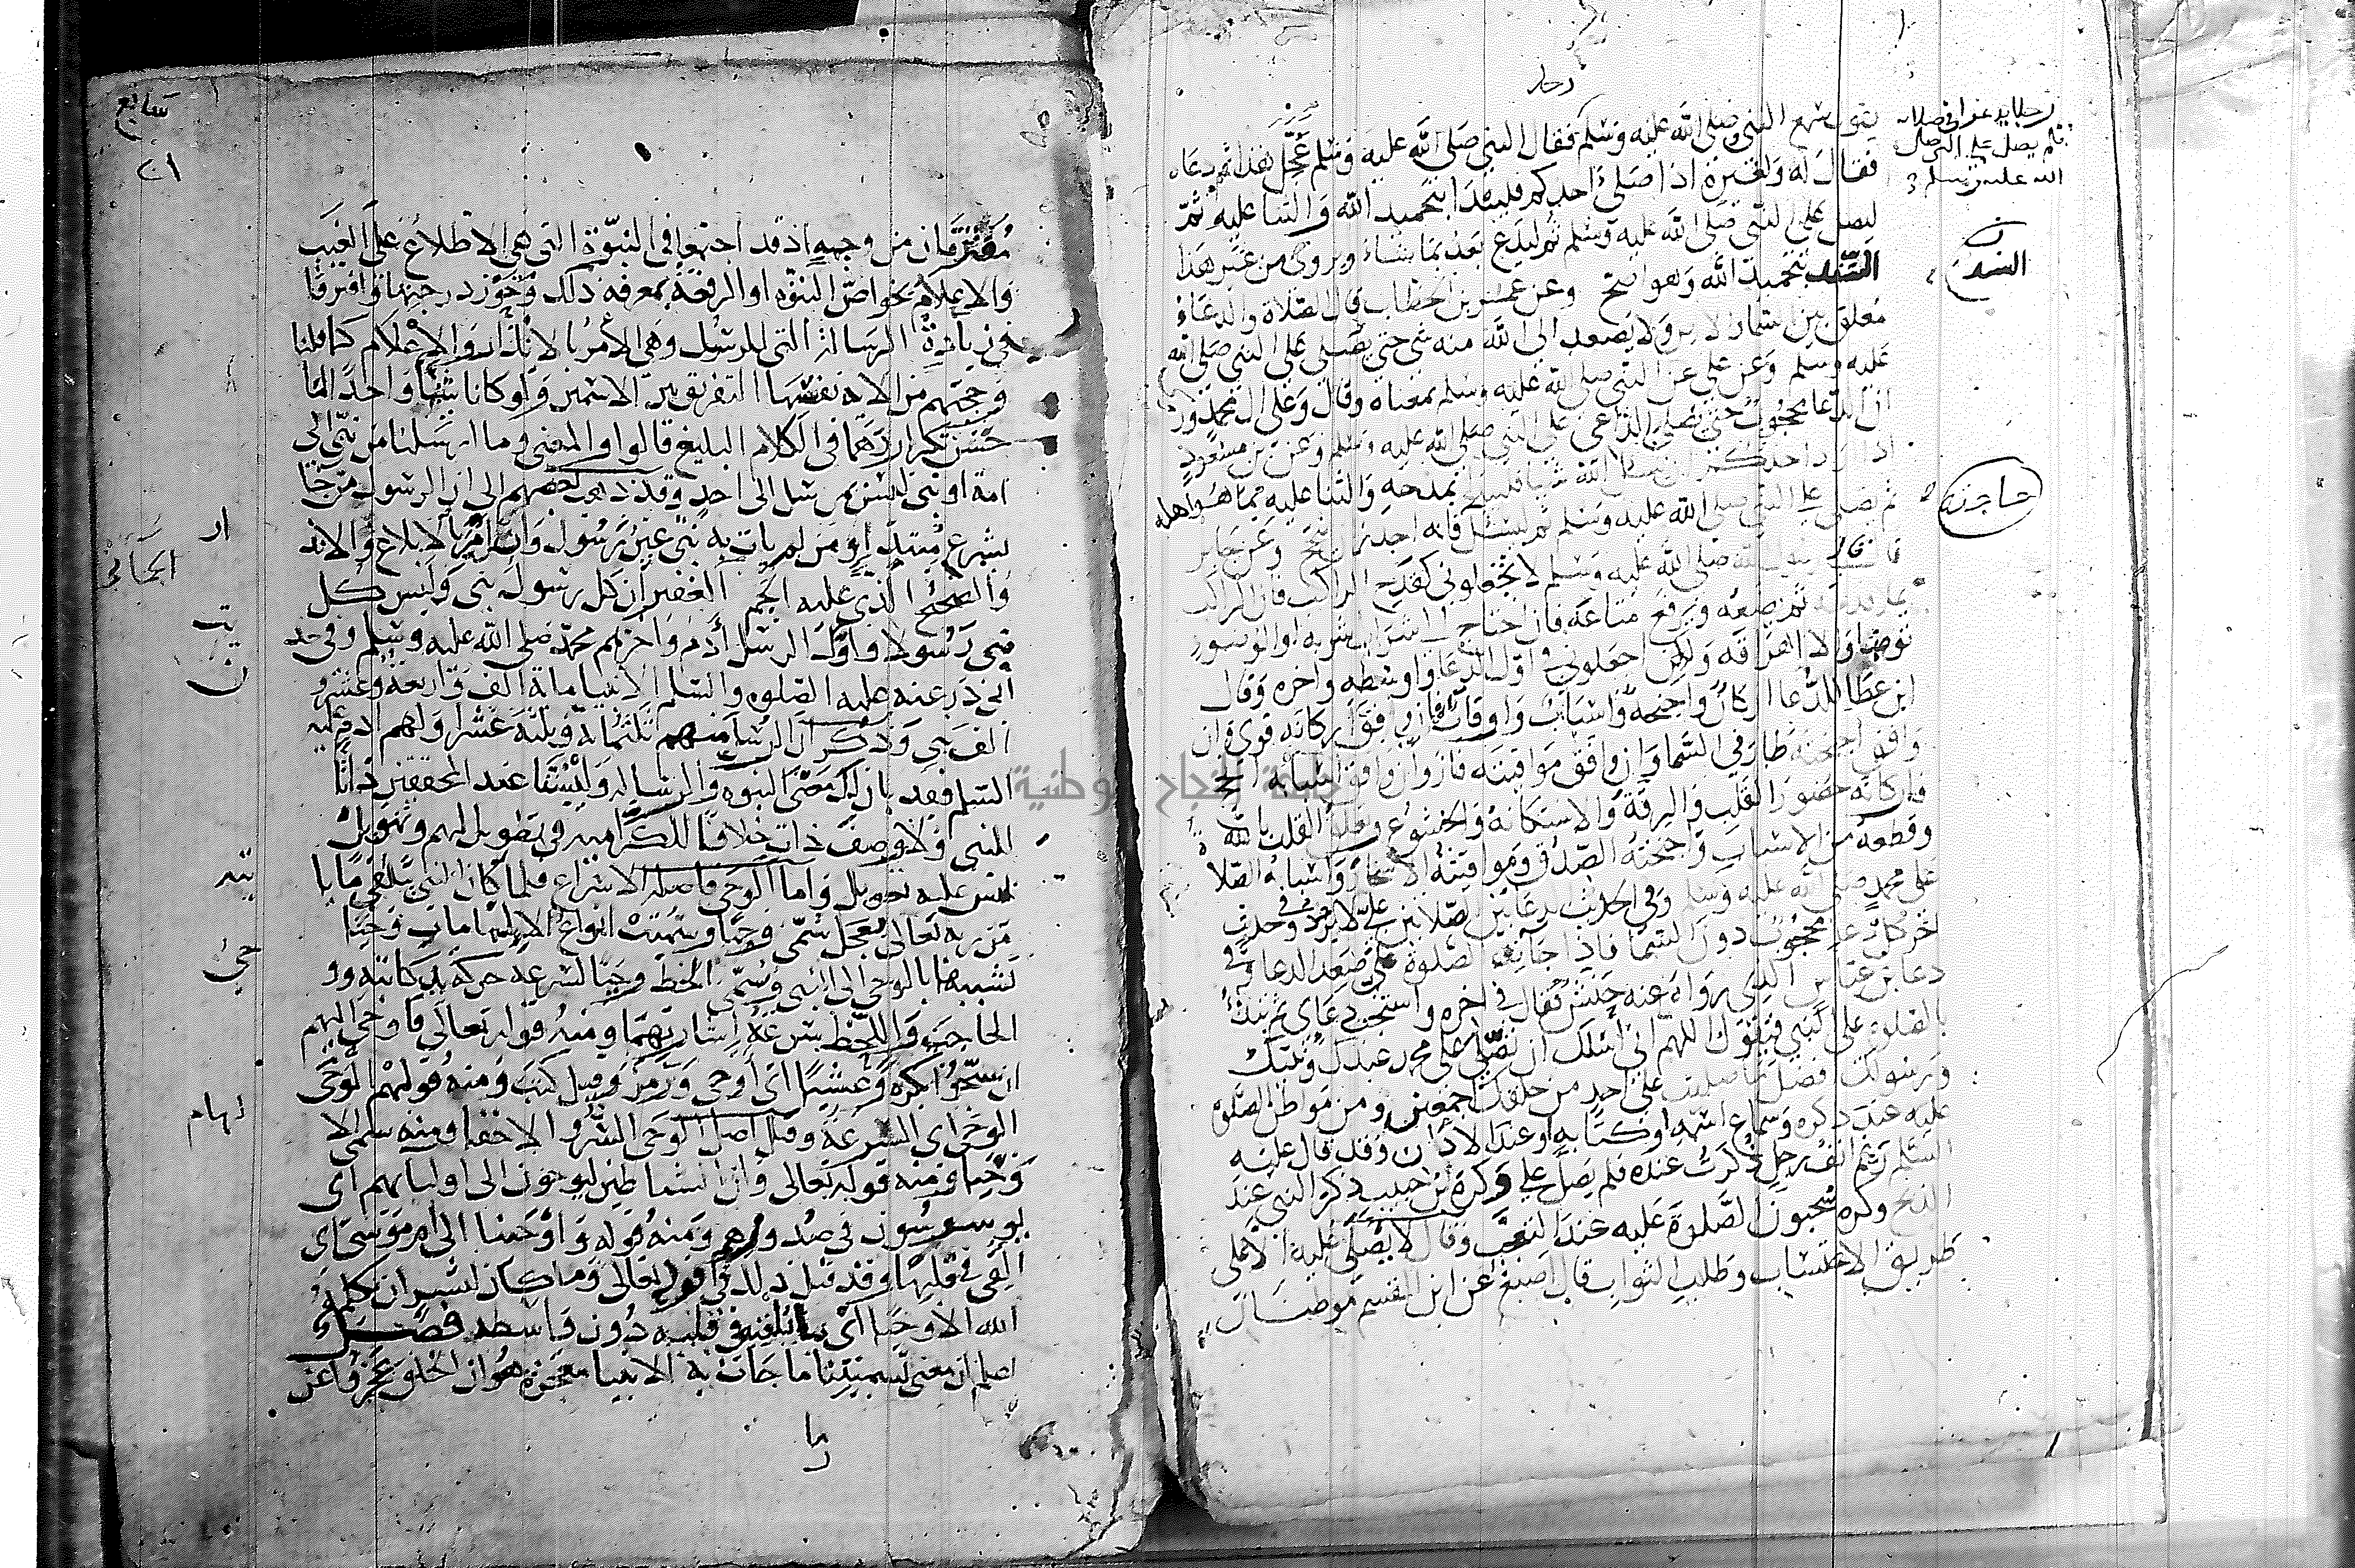 رجلا يدعو في صلاته
فلم يصل على النبي صلى
الله عليه وسلم
يقول سمع النبي صلى الله عليه وسلم فقال النبي صلى الله عليه وسلم عجل هذا ثم دعاه
فقال له ولغيره اذا صلى احدكم فليبدا بتحميد الله والثنا عليه ثم
ليصل على النبي صلى الله عليه وسلم ثم ليدع بعد بما شاء ويروى من غير هذا
السند بتحميد الله وهو اصح وعن عمر بن الخطاب قال الصلاة والدعاء
السند
معلق بين السما والارض ولا يصعد الى الله منه شي حتى يصلى على النبي صلى الله
عليه وسلم وعن علي عن النبي صلى الله عليه وسلم بمعناه وقال وعلى ال محمد وروي
ان الدعا محجوب حتى يصلي الداعي على النبي صلى الله عليه وسلم وعن بن مسعود
اذا اراد احدكم ان يسئل الله شيا فليبدا بمدحه والثنا عليه بما هو اهله
حاجته
ثم يصلي على النبي صلى الله عليه وسلم ثم ليسئل فانه اجدر ان ينجح وعن جابر
قال قال رسول الله صلى الله عليه وسلم لا تجعلوني كقدح الراكب فان الراكب
يملا قدحه ثم يضعه ويرفع متاعه فان احتاج الى شراب شربه او الوضوء
توضا والا اهراقه ولكن اجعلوني في اول الدعا واوسطه واخره وقال
ابن عطا للدعا اركان واجنحة واسباب واوقات فان وافق اركانه قوي وان
وافق اجنحته طار في السما وان وافق مواقيته فاز وان وافق اسبابه انجح
فاركانه حضور القلب والرقة والاستكانة والخشوع وتعلق القلب بالله
وقطعه من الاسباب واجنحته الصدق ومواقيته الاسحار واسبابه الصلاة
على محمد صلى الله عليه وسلم وفي الحديث الدعا بين الصلاتين علي لا يرد وفي حديث
اخر كل دعا محجوب دون السما فاذا جات الصلوة علي صعد الدعا وفي
دعا بن عباس الذي رواه عنه حنش فقال في اخره واستجب دعاي ثم تبدأ
بالصلوة على النبي فتقول اللهم اني اسئلك ان تصلي على محمد عبدك ونبيك
ورسولك افضل ما صليت على احد من خلقك اجمعين ومن مواطن الصلوة
عليه عند ذكره وسماع اسمه او كتابه او عند الاذان وقد قال عليه
السلم رغم انف رجل ذكرت عنده فلم يصل علي وكره بن حبيب ذكر النبي عند
الذبح وكره سحنون الصلوة عليه عند التعجب وقال لا يصلى عليه الا على
طريق الاحتساب وطلب الثواب قال اصبغ عن ابن القسم موطنان
سابع
مفترقان من وجه اذ قد اجتمعا في النبوة التي هي الاطلاع على الغيب
والاعلام بخواص النبوه او الرفعة بمعرفه ذلك وحوز درجتها وافترقا
في زيادة الرسالة التي للرسول وهي الامر بالانذار والاعلام كما قلنا
وحجتهم من الاية نفسها التفريق بين الاسمين ولو كانا شيئا واحدا لما
حسن تكرارهما في الكلام البليغ قالوا والمعنى وما ارسلنا من نبي الى
امة او نبي ليس بمرسل الى احد وقد ذهب بعضهم الى ان الرسول من جا
بشرع مبتدا ومن لم يات به نبي غير رسول وان امر بالابلاغ والانذ
ار
والصحيح الذي عليه الجم الغفير ان كل رسول نبي وليس كل
الجماء
نبي رسولا واول الرسل آدم واخرهم محمد صلى الله عليه وسلم وفي حد
يث
ابي ذر عنه عليه الصلوه والسلم الانبيا ماية الف واربعة وعشرو
ن
الف نبي وذكر ان الرسل منهم ثلثماية وثلثة عشر اولهم ادم عليه
السلم فقد بان لك معنى النبوه والرسالة وليستا عند المحققين ذاتا
للنبي ولا وصف ذات خلافا للكراميه في تطويل لهم وتهويل
ليس عليه تعويل واما الوحي فاصله الاسراع فلما كان النبي يتلقى ما يا
تيه
من ربه تعالى بعجل سمي وحيا وسميت انواع الالهامات وحيا
تشبيها بالوحي الى النبي وسمي الخط وحيا لسرعه حركة يد كاتبه وو
حي
الحاجب واللحظ سرعة اشارتهما ومنه قوله تعالى فاوحى اليهم
ان سبحوا بكرة وعشيا اي اوحى ورمز وقيل كتب ومنه قولهم الوحى
الوحى اي السرعة وقيل اصل الوحي السر والاخفا ومنه سمي الا
لهام
وحيا ومنه قوله تعالى وان الشياطين ليوحون الى اوليائهم اي
يوسوسون في صدورهم ومنه قوله واوحينا الى ام موسى اي
القي في قلبها وقد قيل ذلك في قوله تعالى وما كان لبشر ان يكلمه
الله الا وحيا اي ما يلقيه في قلبه دون واسطه فصل
اعلم ان معنى تسميتنا ما جات به الانبيا معجزة هو ان الخلق عجزوا عن
جامعة النجاح الوطنية